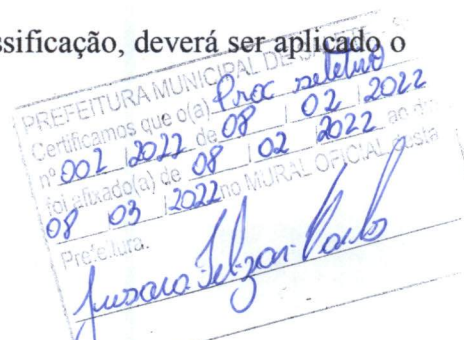 ssificação, deverá ser aplicado o
PREFEITURA MUNICIPAL DE
Certificamos que o(a) Proc seletivo
nº 002 / 2022 de 08 / 02 / 2022
foi afixado(a) de 08 / 02 / 2022 ao dia
08 / 03 / 2022 no MURAL OFICIAL desta
Prefeitura.